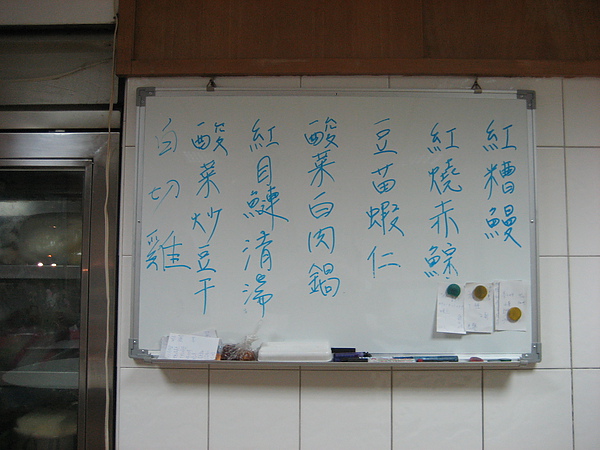 紅糟鰻
紅燒赤鯮
豆苗蝦仁
酸菜白肉鍋
紅目鰱清湯
酸菜炒豆干
白切雞